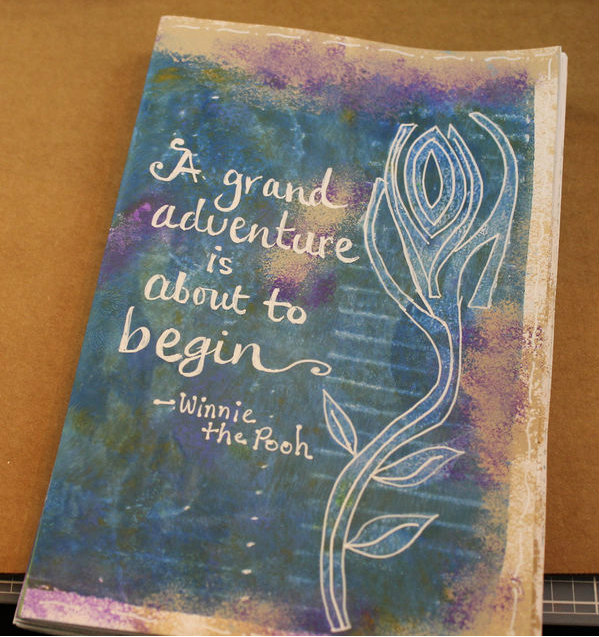 A grand
adventure
is
about to
begin
—Winnie
the Pooh